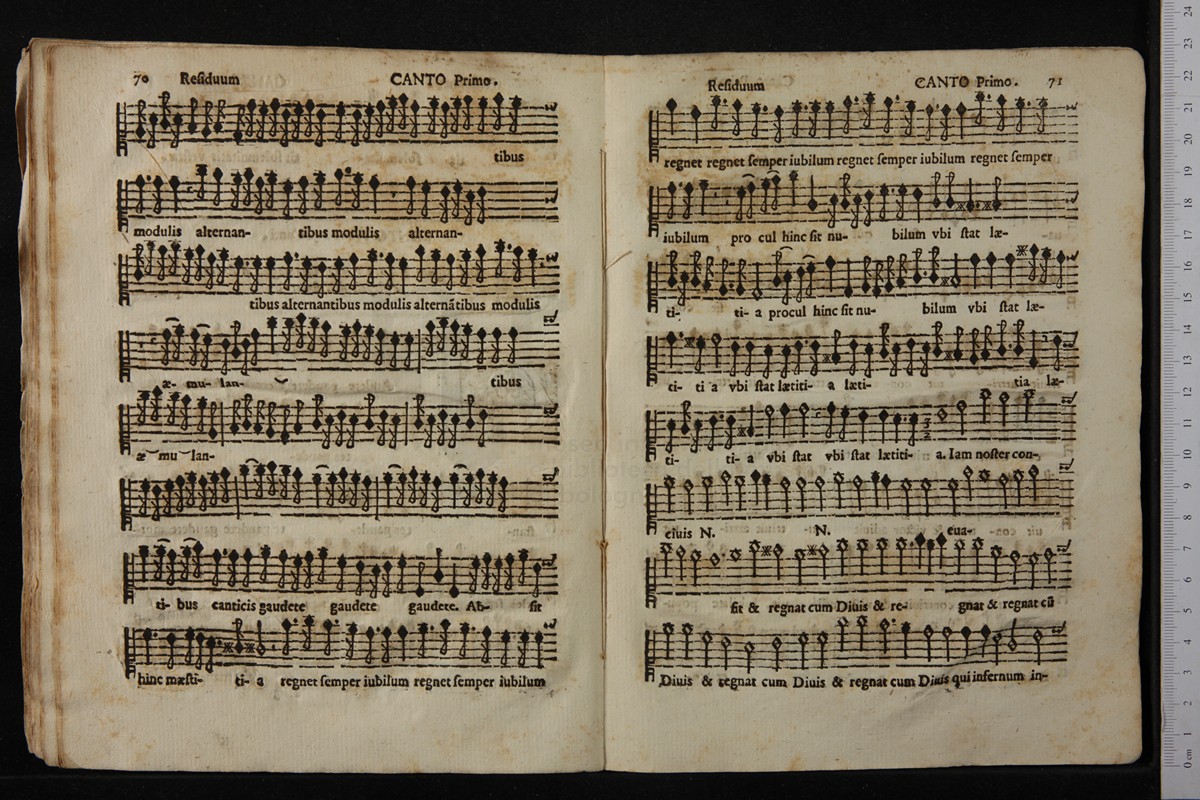 70 Reſiduum CANTO Primo.
tibus
modulis alternan- tibus modulis alternan-
tibus alternantibus modulis alternātibus modulis
æ- mu- lan- tibus
æ mu lan-
ti- bus canticis gaudete gaudete gaudete. Ab- ſit
hinc mæſti- ti- a regnet ſemper iubilum regnet ſemper iubilum
Reſiduum CANTO Primo. 71
regnet regnet ſemper iubilum regnet ſemper iubilum regnet ſemper
iubilum pro cul hinc ſit nu- bilum vbi ſtat læ-
ti- ti- a procul hinc ſit nu- bilum vbi ſtat læ-
ti- ti a vbi ſtat lætiti- a læti- tia læ-
ti- ti- a vbi ſtat vbi ſtat lætiti- a. Iam noſter con-
ciuis N. N. eua-
ſit & regnat cum Diuis & re- gnat & regnat cū
Diuis & regnat cum Diuis & regnat cum Diuis qui infernum in-
0 cm 1 2 3 4 5 6 7 8 9 10 11 12 13 14 15 16 17 18 19 20 21 22 23 24